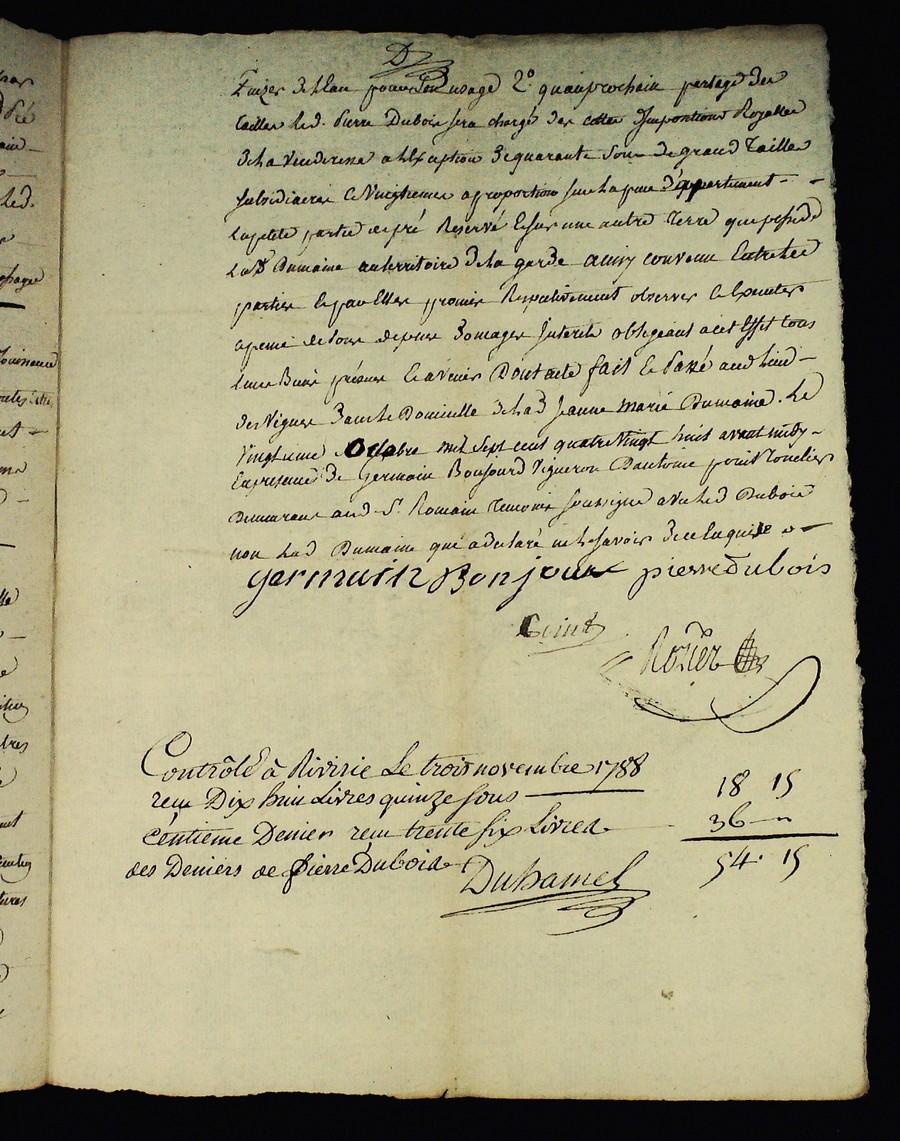 D
Puizer de l'Eau pour Son usage 2° qu'au prochain partage des
tailles Led. Pierre Dubois sera chargé des cottes Impositions Royalles
de La Venderesse a l'Exception de quarante Sous de grand Tailles
subsidiaires Et Vingtiemes a proportion sur La d'appartement -
La petite partie de pré Reservé Et sur une autre Terre que possede
Lad. Dumaine au territoire de La garde ainsy convenu Entre Les
parties Et par Elles promis Respectivement observer Et Executer
a peine de tous depens Domages Interets obligeant a cet Effet tous
Leurs Biens présens Et a venir Dont acte fait Et Passé aud Lieu -
des Vignes Dans Le Domicille de Lad Jeanne Marie Dumaine. Le
Vingt Octobre mil Sept cent quatre Vingt huit avant midy -
En presence de Germain Bonjour Vigneron D'antoine Tonelier
Demeurans aud. St. Romain Temoins soussignés avec Led Dubois
non Lad Dumaine qui a declaré ne Le savoir de ce Enquise
germain Bonjour pierre dubois
Rozier
Contrôlé à Riverie Le trois novembre 1788
reçu Dix huit Livres quinze sous 18 15
Centieme Denier reçu trente six Livres 36 -
des Deniers de pierre Dubois 54. 15
Duhamel